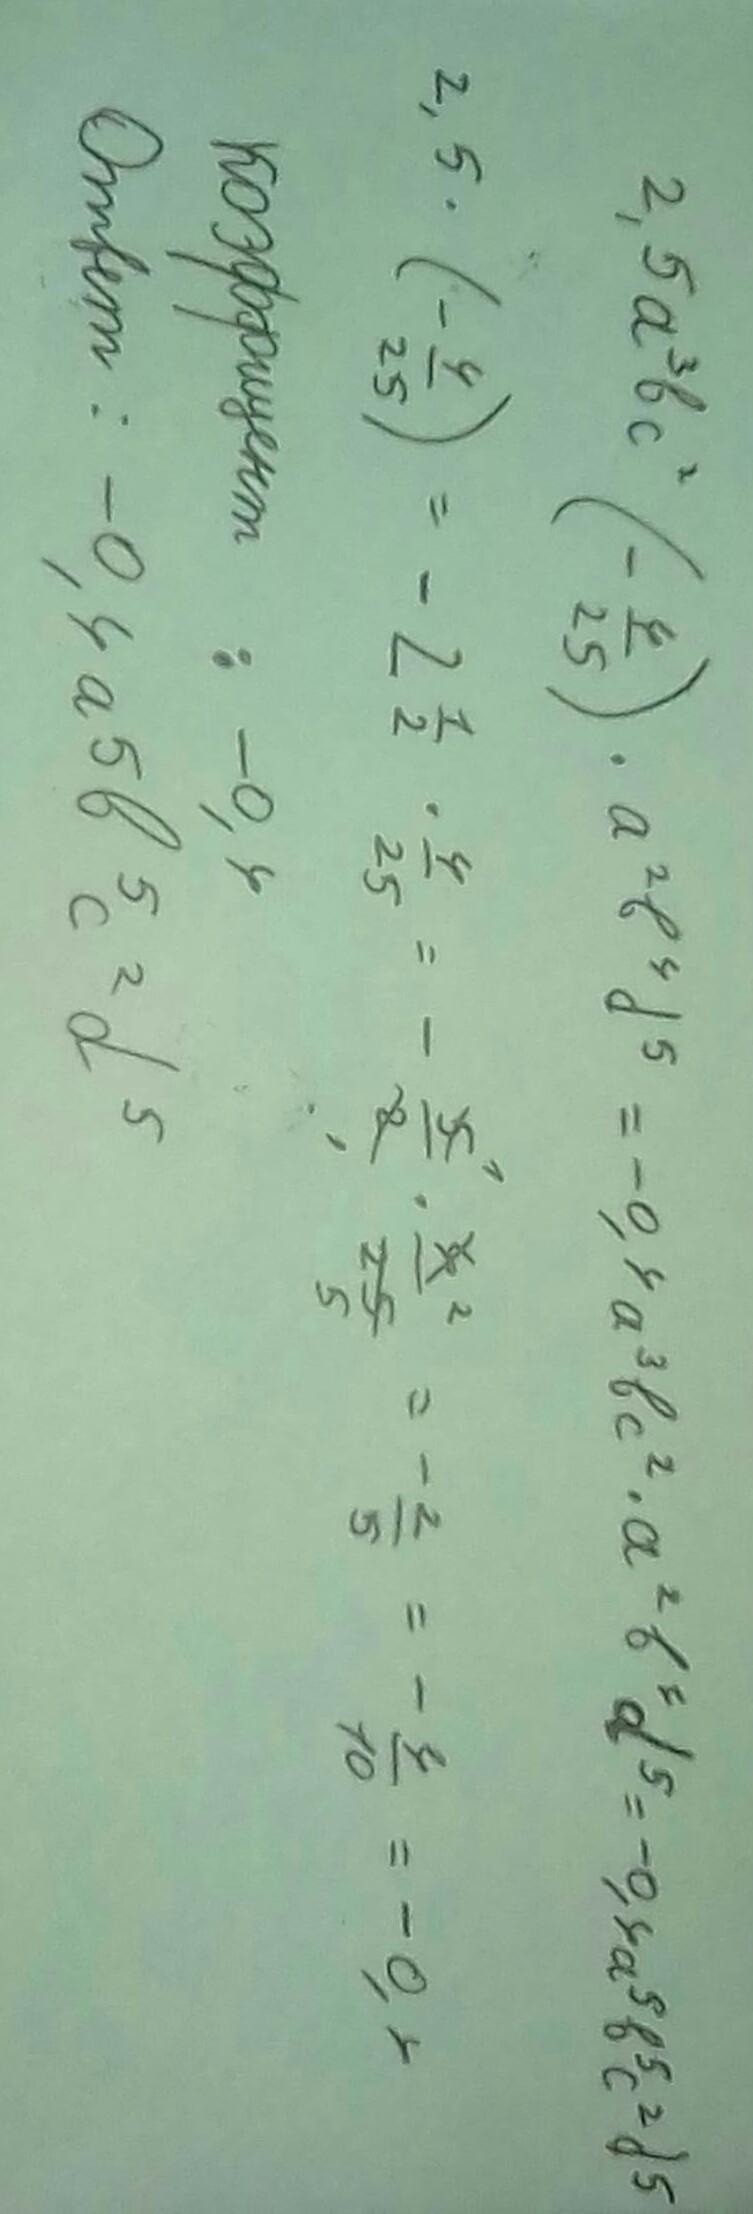 2,5a³bc²(-4/25)·a²b⁴d⁵ = -0,4a³bc²·a²b⁴d⁵ = -0,4a⁵b⁵c²d⁵
2,5·(-4/25) = -2 1/2 · 4/25 = - 5/2 · 4/25 = - 2/5 = - 4/10 = -0,4
Коэффициент : -0,4
Ответ : -0,4a5b⁵c²d⁵